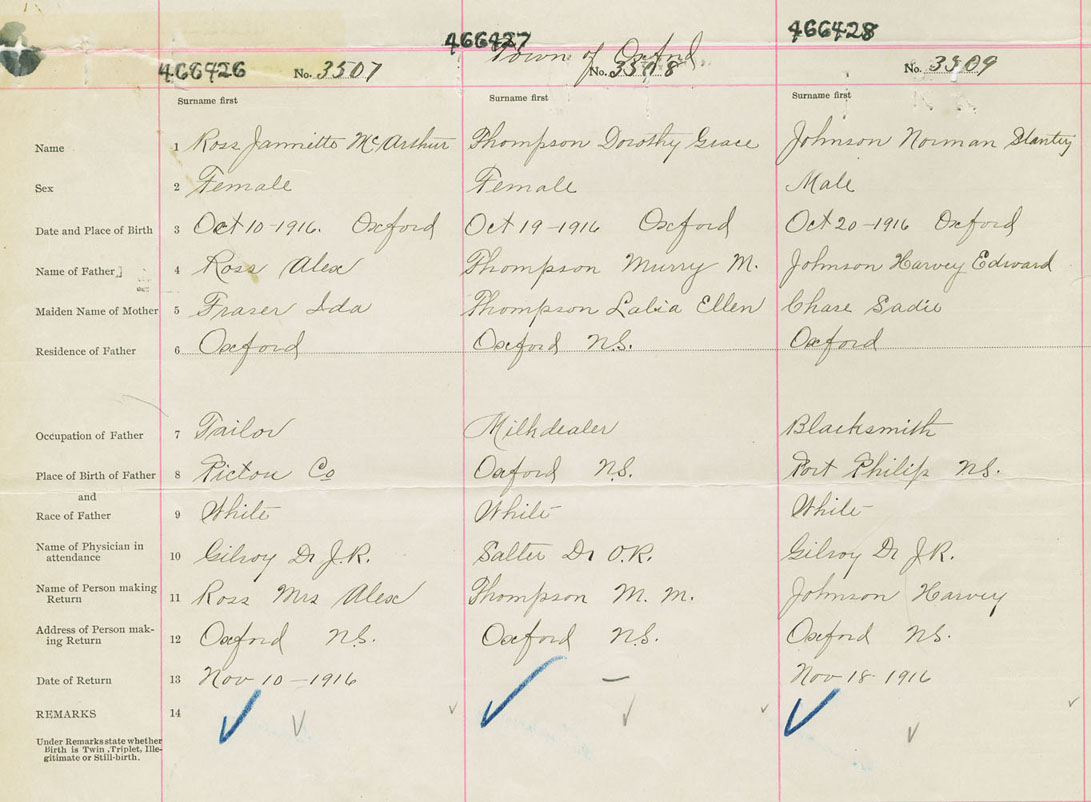 466427 Town of Oxford 466428
466426 No. 3507 No. 3508 No. 3509
Surname first Surname first Surname first
Name 1 Ross Jannette McArthur Thompson Dorothy Grace Johnson Norman Stanley
Sex 2 Female Female Male
Date and Place of Birth 3 Oct 10-1916. Oxford Oct 19-1916 Oxford Oct 20-1916 Oxford
Name of Father 4 Ross Alex Thompson Murry M. Johnson Harvey Edward
Maiden Name of Mother 5 Fraser Ida Thompson Labia Ellen Chase Sadie
Residence of Father 6 Oxford Oxford N.S. Oxford
Occupation of Father 7 Tailor Milkdealer Blacksmith
Place of Birth of Father 8 Pictou Co Oxford N.S. Port Philip N.S.
and
Race of Father 9 White White White
Name of Physician in
attendance 10 Gilroy Dr J.R. Salter Dr O.R. Gilroy Dr J.R.
Name of Person making
Return 11 Ross Mrs Alex Thompson M. M. Johnson Harvey
Address of Person mak-
ing Return 12 Oxford N.S. Oxford N.S. Oxford N.S.
Date of Return 13 Nov 10-1916 — Nov 18-1916
REMARKS 14
Under Remarks state whether
Birth is Twin, Triplet, Ille-
gitimate or Still-birth.